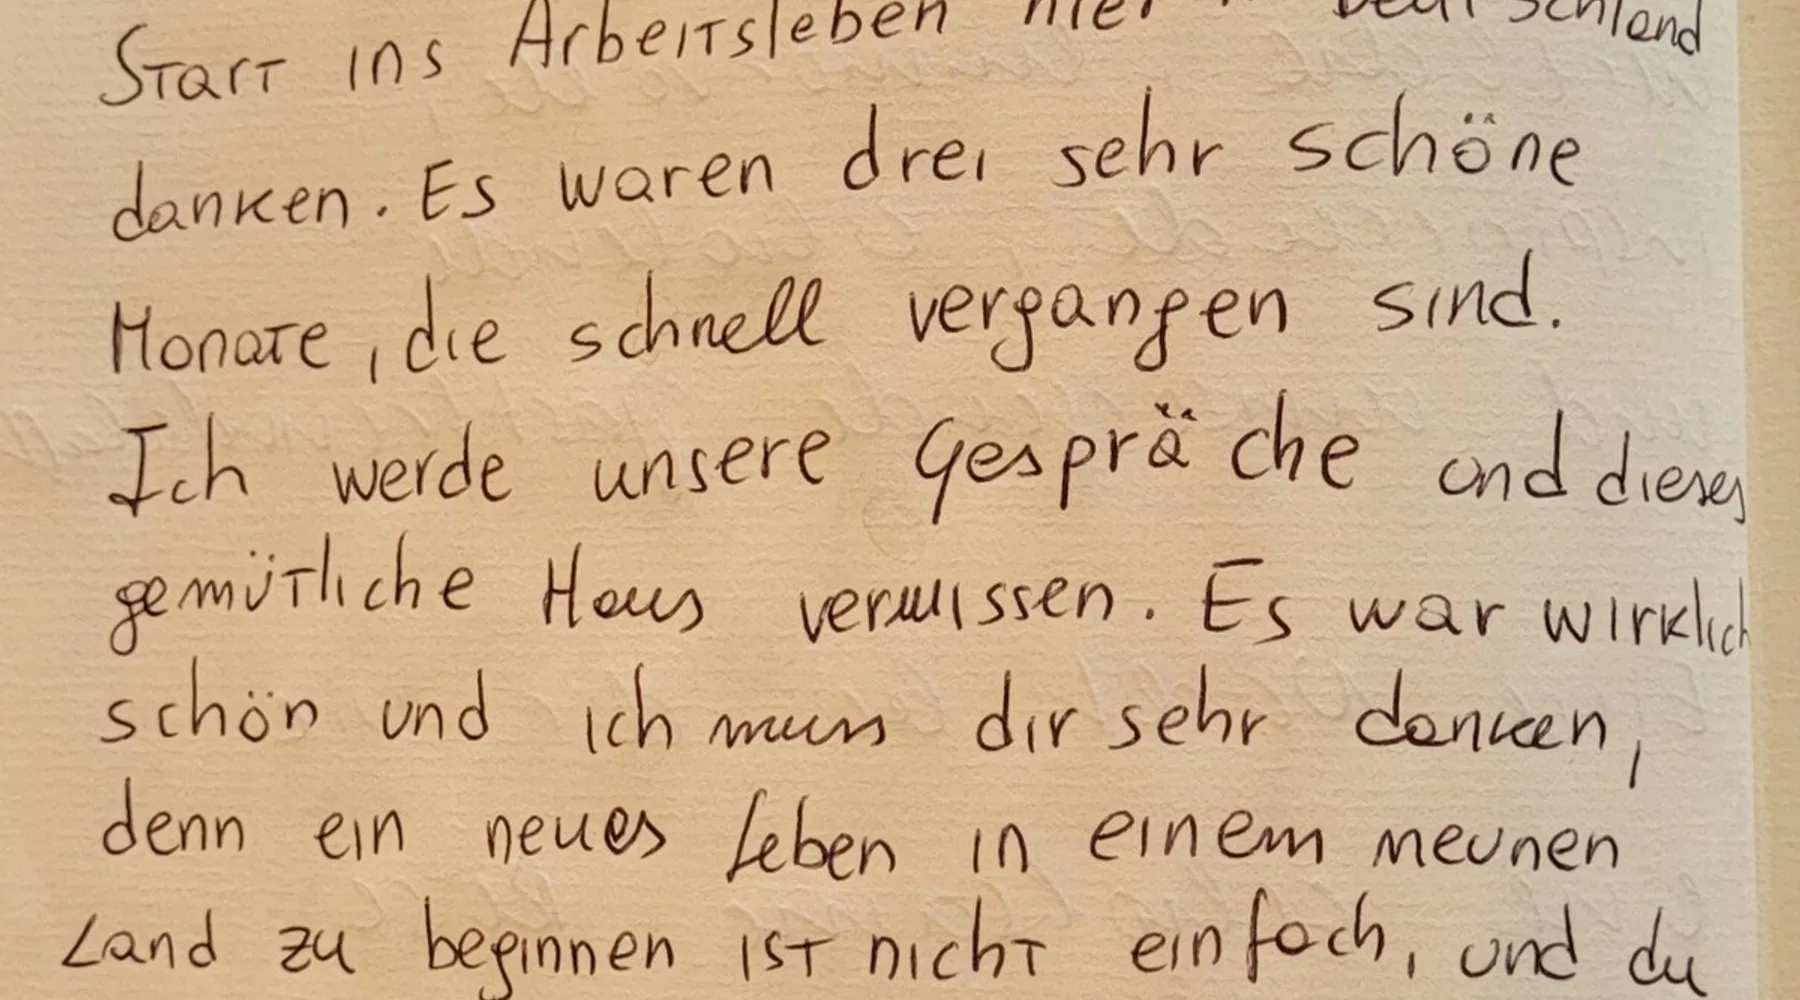 Start ins Arbeitsleben hier in Deutschland
danken. Es waren drei sehr schöne
Monate, die schnell vergangen sind.
Ich werde unsere Gespräche und dieses
gemütliche Haus vermissen. Es war wirklich
schön und ich muss dir sehr danken,
denn ein neues Leben in einem meunen
Land zu beginnen ist nicht einfach, und du